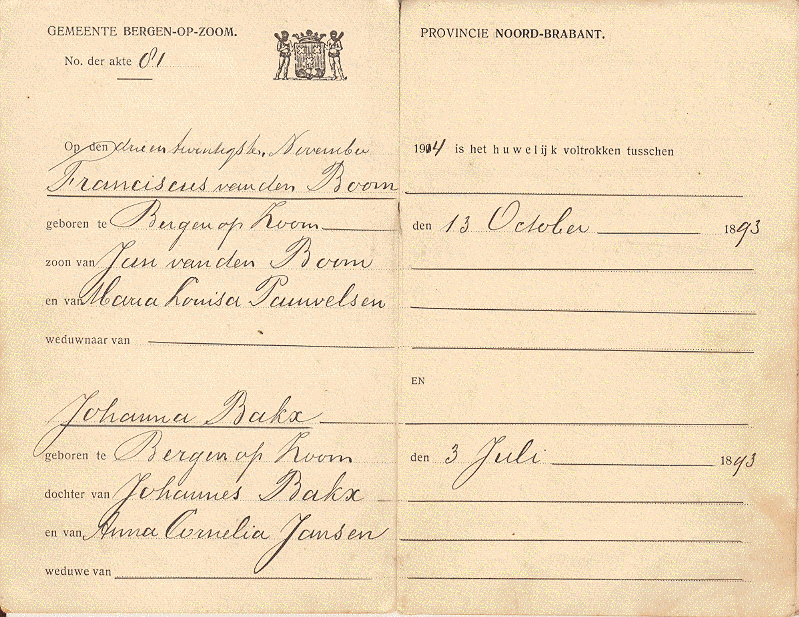 GEMEENTE BERGEN-OP-ZOOM.
No. der akte 81
Op den drieentwintigsten November
Franciscus van den Boom
geboren te Bergen op Zoom
zoon van Jan van den Boom
en van Maria Louisa Pauwelsen
weduwnaar van
Johanna Bakx
geboren te Bergen op Zoom
dochter van Johannes Bakx
en van Anna Cornelia Jansen
weduwe van
PROVINCIE NOORD-BRABANT.
1914 is het huwelijk voltrokken tusschen
den 13 October 1893
EN
den 3 Juli 1893